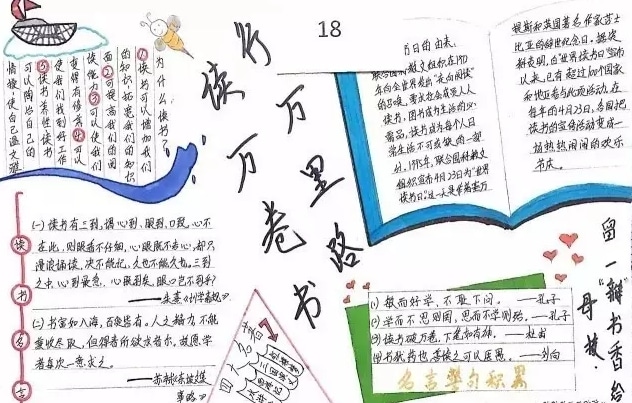 18
行万里路
读万卷书
为什么读书?
①读书可以增加我们
的知识,拓宽我们的知识
面②可提高我们的阅
读能力③可以使我们
变得有修养④可以
使我们找到好工作
⑤读书养性,读书
可以陶冶自己的
情操,使自己温文雅
日的由来
年向全世界发出"走向阅读
的召唤,要求社会成员人人
读书,图书成为生活的必
需品,读书成为每个人日
常生活不可或缺的一部
分。1995年,联合国科教文
组织宣布4月23日为"世界
读书日"。这一天是
班牙和英国著名作家莎士
比亚的辞世纪念日。据资
料表明,自"世界读书日"宣布
以来,已有超过100个国家
和地区参与此项活动,在
每年的4月23日,各国把
读书的宣传活动变成一
场热热闹闹的欢乐
节庆。
读书名言
(一)读书有三到,谓心到、眼到、口到,心不
在此,则眼看不仔细,心眼既不专心,却只
漫浪诵读,决不能记,久也不能久也。三到
之中,心到最急,心既到矣,眼口岂不到乎?
——朱熹《训学斋规》
(二)书富如入海,百货皆有。人之精力,不能
兼收尽取,但得春所欲求者尔。故愿学
者每次一意求之。
——苏轼
(1)敏而好学,不耻下问。——孔子
(2)学而不思则罔,思而不学则殆。——孔子
(3)读书破万卷,下笔如有神。——杜甫
(4)书犹药也,善读之可以医愚。——刘向
名言警句积累
留一瓣书香给
母校